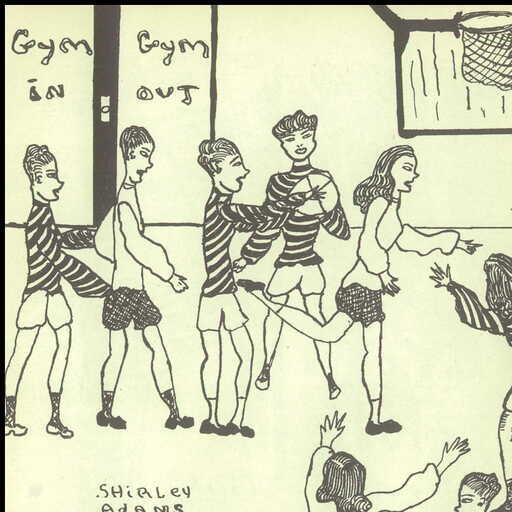 Gym Gym
iN OUT
SHiRLey
ADAMS